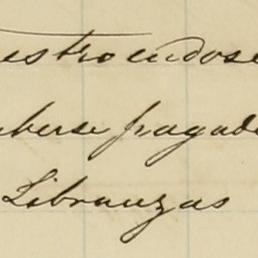 estro endose
aberse pagado
Libranzas